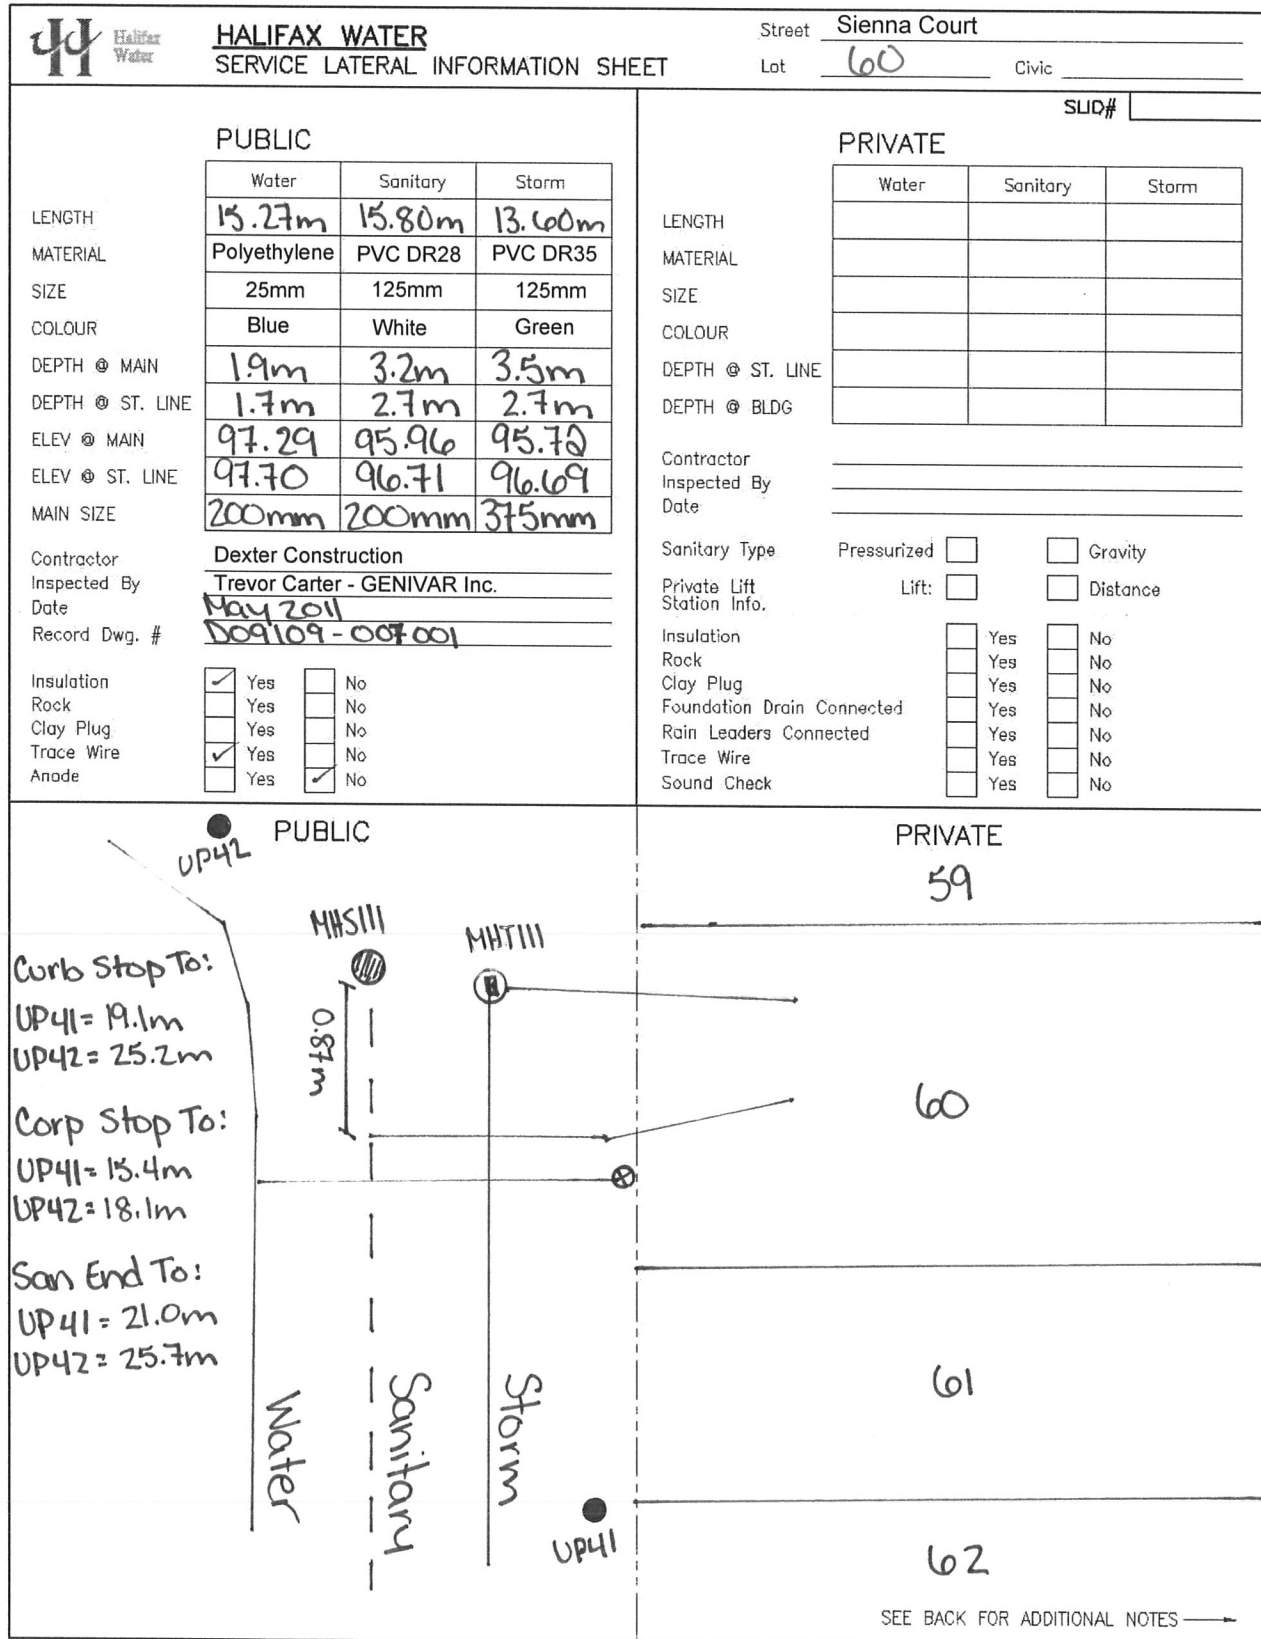 Halifax Water
HALIFAX WATER
SERVICE LATERAL INFORMATION SHEET
Street Sienna Court
Lot 60 Civic
SLID#
PUBLIC
Water Sanitary Storm
LENGTH 15.27m 15.80m 13.60m
MATERIAL Polyethylene PVC DR28 PVC DR35
SIZE 25mm 125mm 125mm
COLOUR Blue White Green
DEPTH @ MAIN 1.9m 3.2m 3.5m
DEPTH @ ST. LINE 1.7m 2.7m 2.7m
ELEV @ MAIN 97.29 95.96 95.72
ELEV @ ST. LINE 97.70 96.71 96.69
MAIN SIZE 200mm 200mm 375mm
Contractor Dexter Construction
Inspected By Trevor Carter - GENIVAR Inc.
Date May 2011
Record Dwg. # D09109-007001
Insulation ✓ Yes No
Rock Yes No
Clay Plug Yes No
Trace Wire ✓ Yes No
Anode Yes ✓ No
PRIVATE
Water Sanitary Storm
LENGTH
MATERIAL
SIZE
COLOUR
DEPTH @ ST. LINE
DEPTH @ BLDG
Contractor
Inspected By
Date
Sanitary Type Pressurized Gravity
Private Lift Station Info. Lift: Distance
Insulation Yes No
Rock Yes No
Clay Plug Yes No
Foundation Drain Connected Yes No
Rain Leaders Connected Yes No
Trace Wire Yes No
Sound Check Yes No
PUBLIC
UP42
MHS111
MHT111
Curb Stop To:
UP41= 19.1m
UP42= 25.2m
0.87m
Corp Stop To:
UP41= 15.4m
UP42= 18.1m
San End To:
UP41= 21.0m
UP42= 25.7m
Water
Sanitary
Storm
UP41
PRIVATE
59
60
61
62
SEE BACK FOR ADDITIONAL NOTES